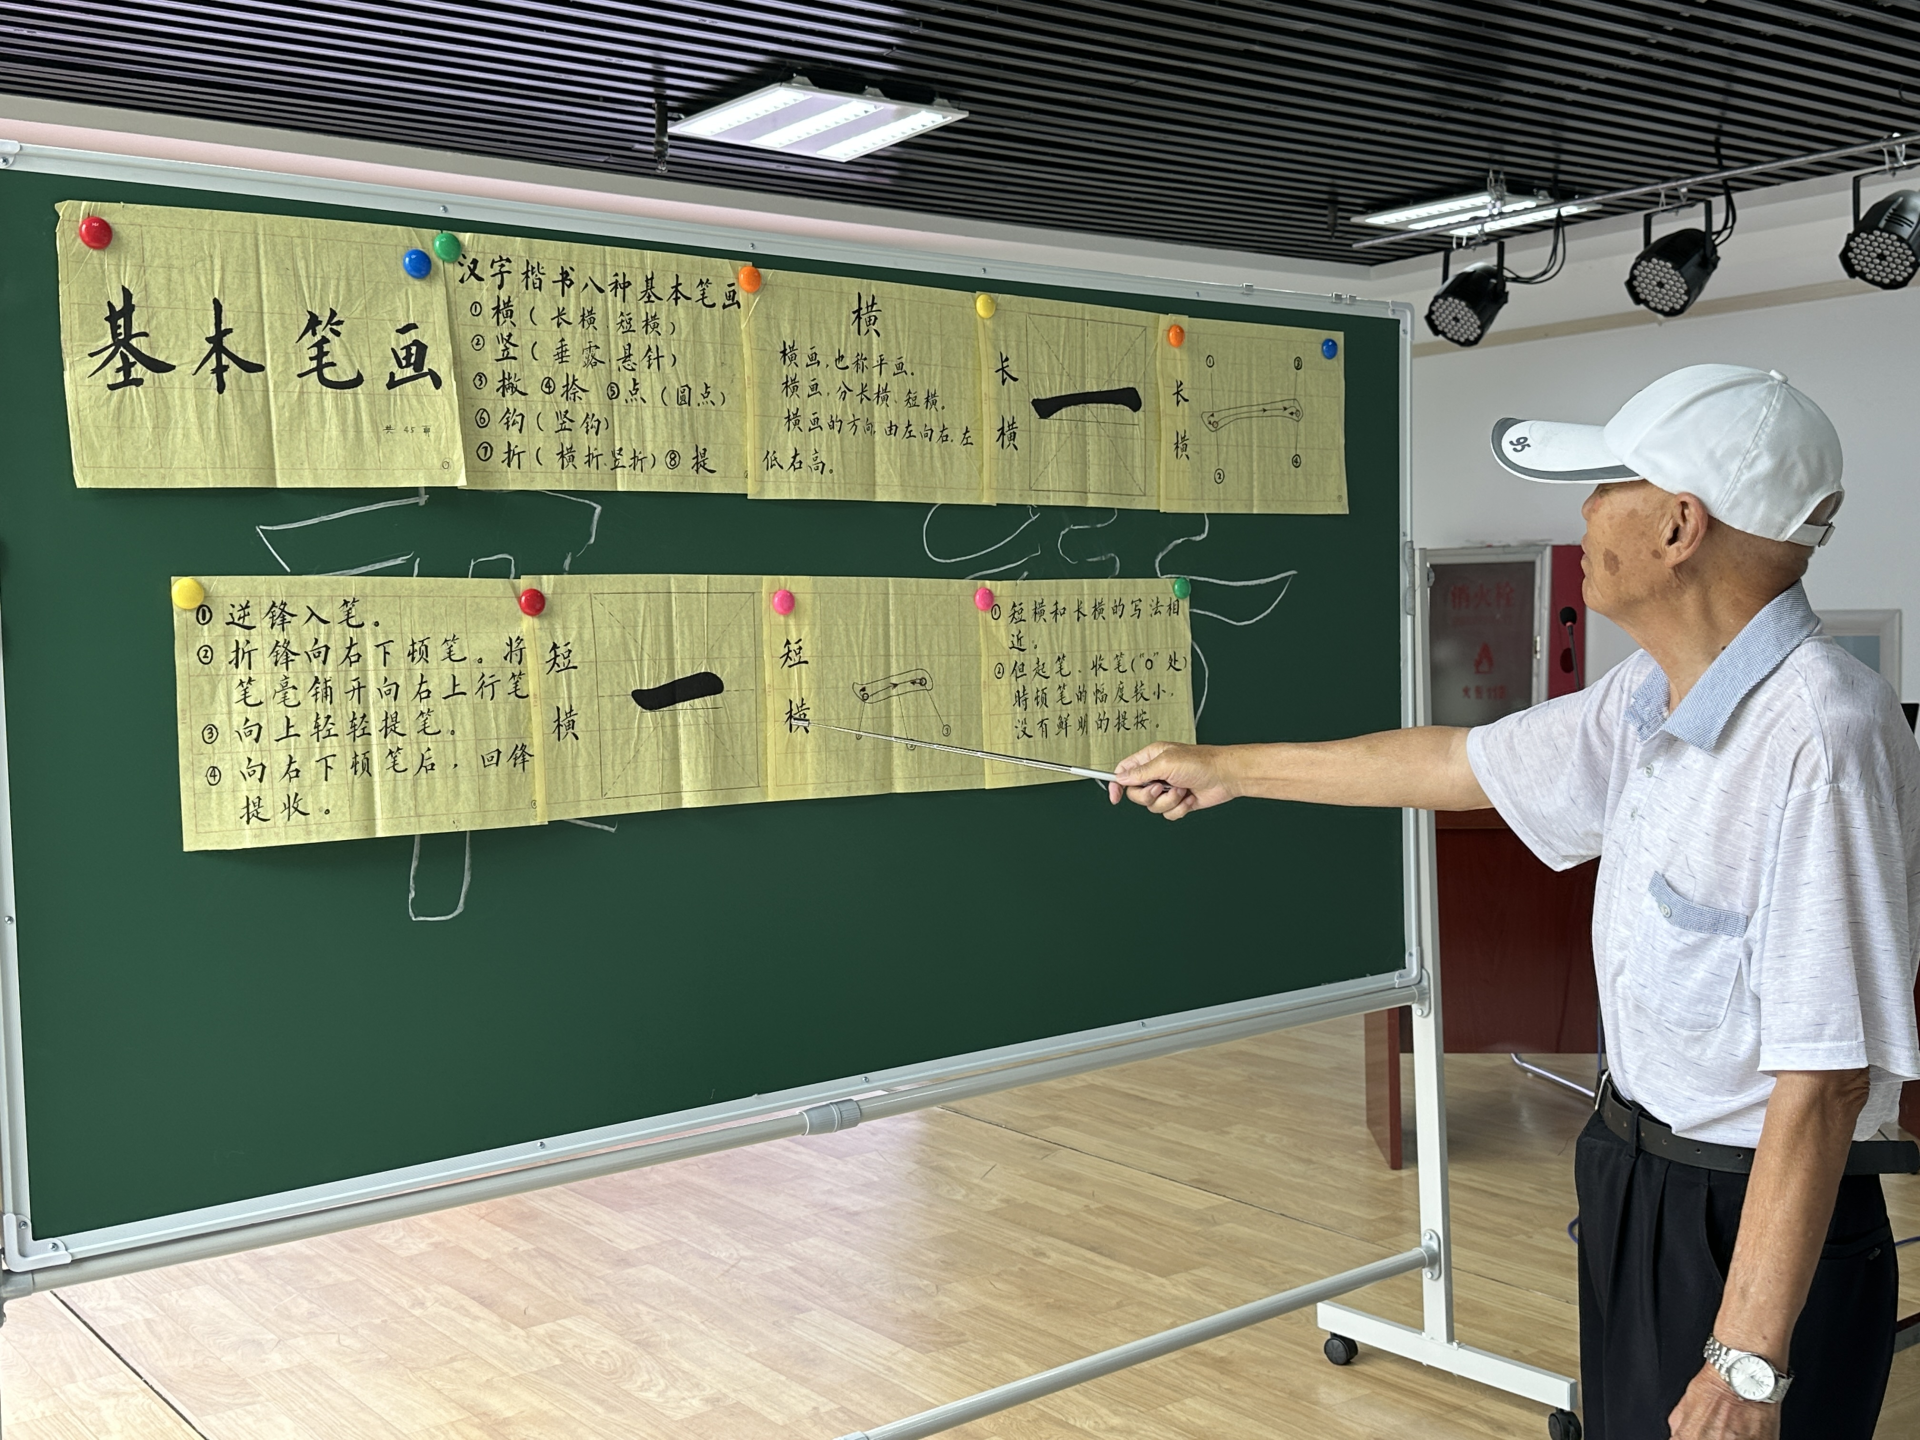 基本笔画
共45画
汉字楷书八种基本笔画
①横(长横、短横)
②竖(垂露、悬针)
③撇 ④捺 ⑤点(圆点)
⑥钩(竖钩)
⑦折(横折、竖折)⑧提
横
横画,也称平画。
横画,分长横、短横。
横画的方向,由左向右,左
低右高。
长横
长横
① ③
② ④
①逆锋入笔。
②折锋向右下顿笔。将
笔毫铺开向右上行笔
③向上轻轻提笔。
④向右下顿笔后,回锋
提收。
短横
短横
①短横和长横的写法相
近。
②但起笔、收笔("0"处)
時顿笔的幅度较小,
没有鲜明的提按。
95
消火栓